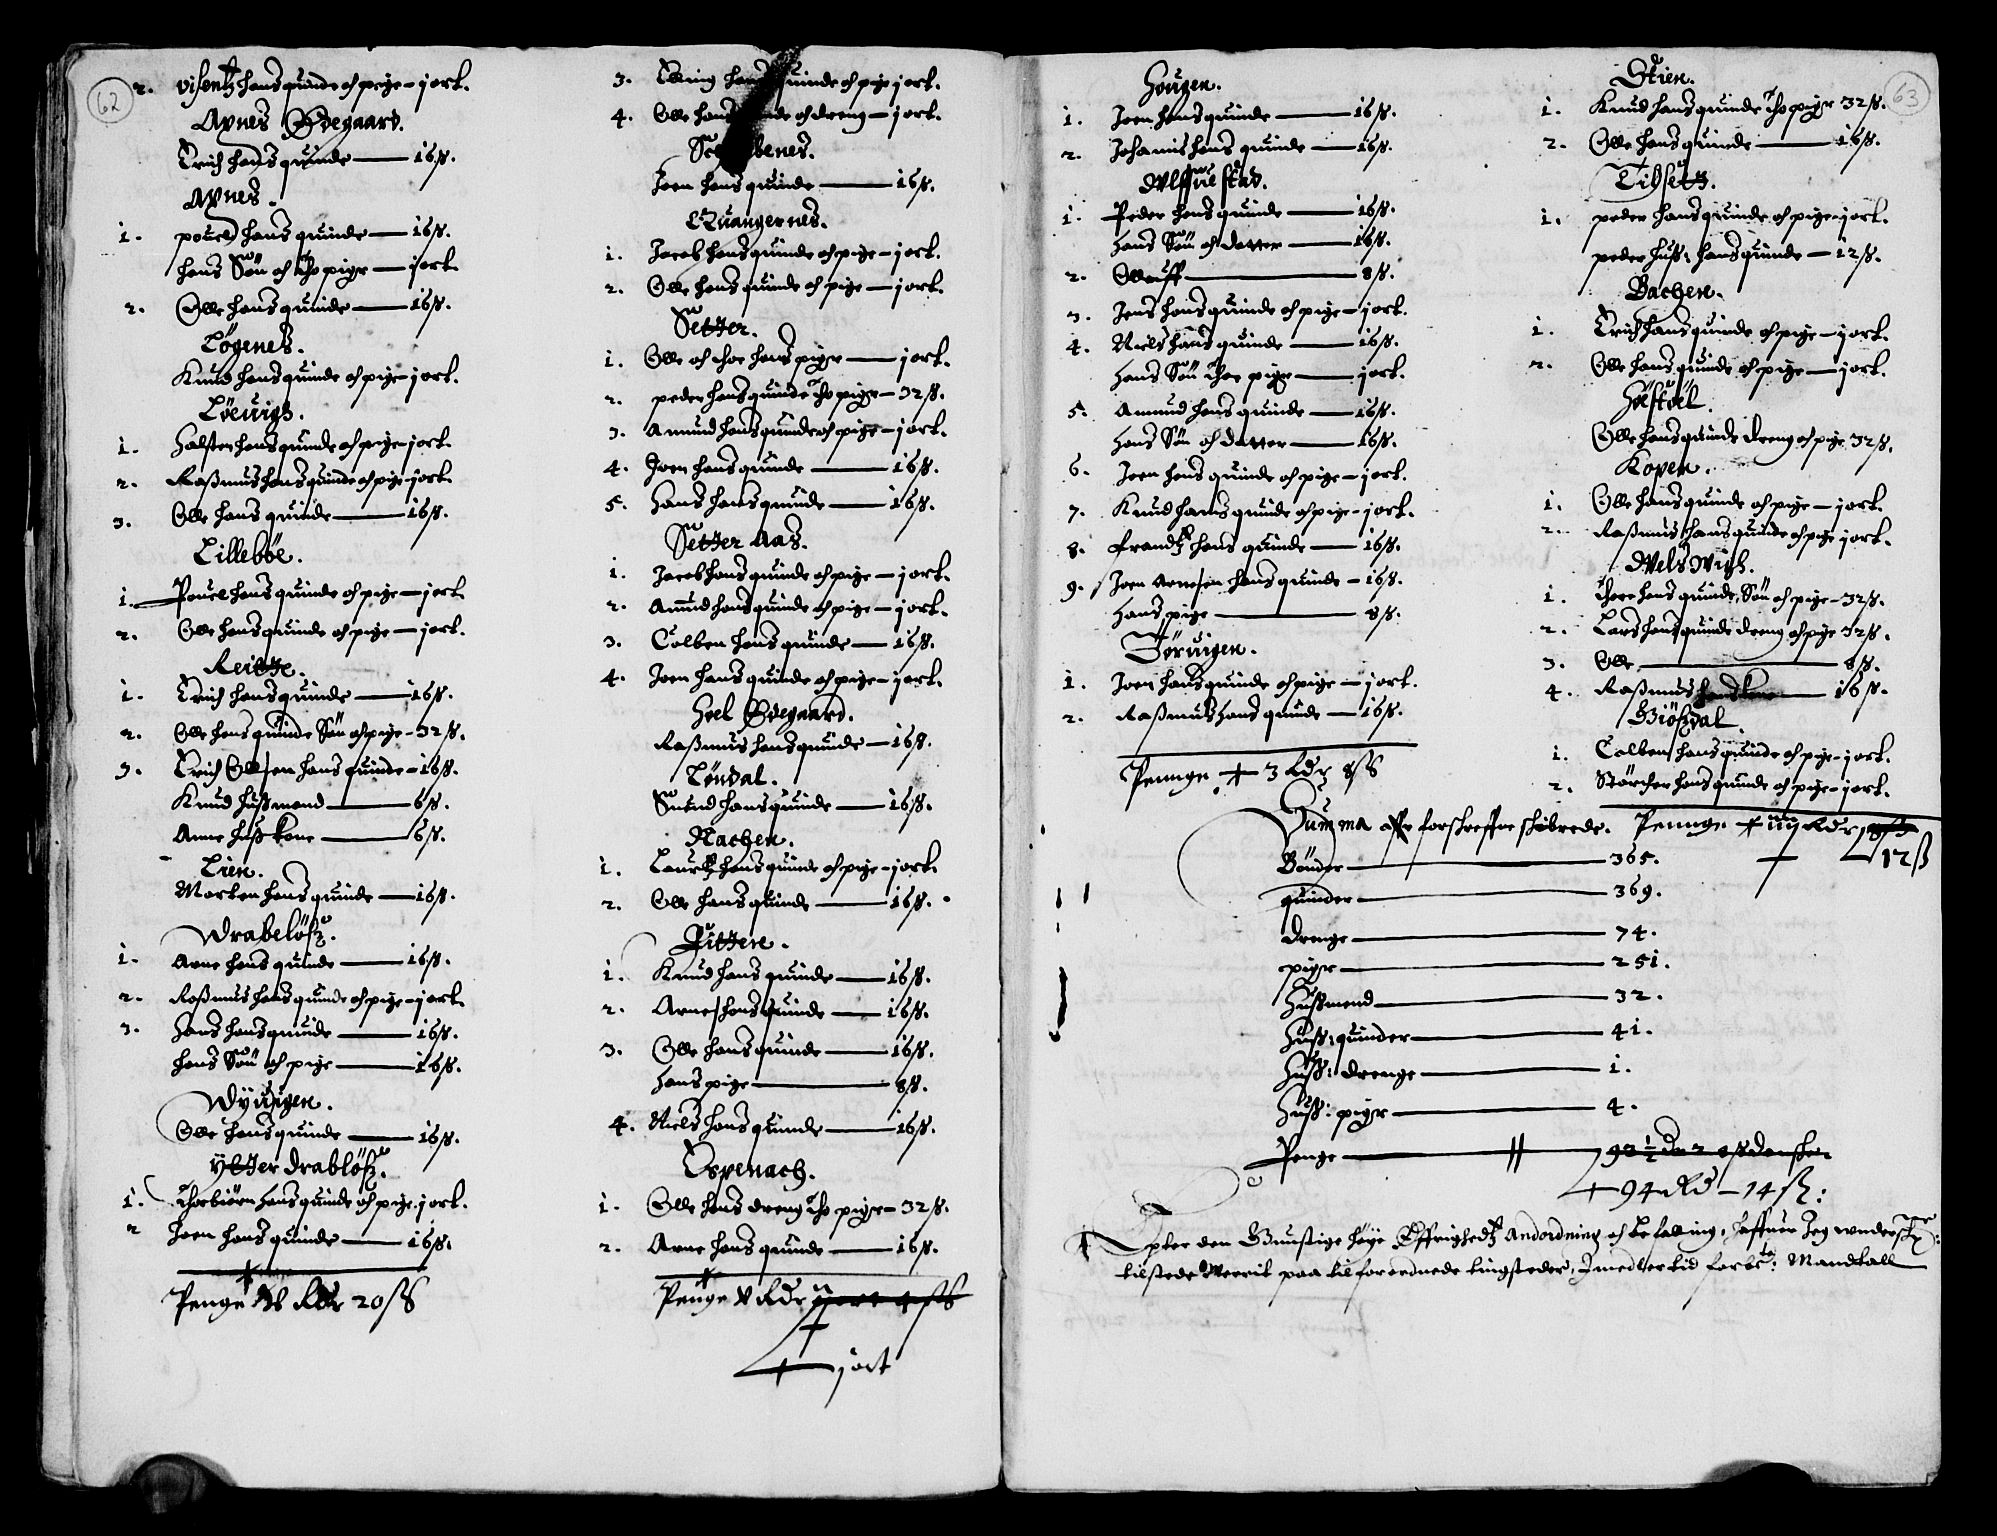 62
2. Visentz hans quinde och peige - j ort.
Apnes Ødegaard.
Erich hans quinde — 16 ß.
Apnes.
1. Pouel hans quinde — 16 ß.
hans Søn och tho piger — j ort.
2. Olle hans quinde — 16 ß.
Løgenes.
Knud hans quinde och pige - j ort.
Løeuigh.
1. Halsten hans quinde och peige - j ort.
2. Rassmus hans quinde och pige - j ort.
3. Olle hans quinde — 16 ß.
Lillebøe.
1. Pouel hans quinde och pige - j ort.
2. Olle hans quinde och pige - j ort.
Reitte.
1. Erich hans quinde — 16 ß.
2. Olle hans quinde Søn och pige - 32 ß.
3. Erich Ollsen hans quinde - 16 ß.
Knud hussmand — 6 ß.
Anne huss kone — 6 ß.
Lien.
Morten hans quinde — 16 ß.
Wrabeløsz.
1. Arne hans quinde — 16 ß.
2. Rassmus hans quinde och pige - j ort.
3. Hans hans quinde — 16 ß.
hans Søn och pige — 16 ß.
Wyuigen.
Olle hans quinde — 16 ß.
Ytter drabløsz.
1. Thorbiørn hans quinde och pige. j ort.
2 Joen hans quinde — 16 ß.
Penge Rdr 20 ß
3. Elling hans quinde och pige j ort.
4. Olle hans quinde och dreng - j ort.
benes.
Joen hans quinde — 16 ß.
Quangernes.
1. Jacob hans quinde och pige - j ort.
2. Olle hans quinde och pige - j ort.
Setter.
1. Olle och thoe hans piger — j ort.
2. peder hans quinde tho piger - 32 ß.
3. Amund hans quinde och pige - j ort.
4. Joen hans quinde — 16 ß.
5. Hans hans quinde — 16 ß.
Setter Aas.
1. Jacob hans quinde och pige - j ort.
2. Amud hans quinde och pige - j ort.
3. Colben hans quinde — 16 ß.
4. Joen hans quinde och pige - j ort.
Hoel Ødegaard.
Rassmus hans quinde - 16 ß.
Løndal.
Suend hans quinde — 16 ß.
Nachen.
1. Lauritz hans quinde och pige - j ort.
2. Olle hans quinde — 16 ß.
Gittere.
1. Knud hans quinde — 16 ß.
2. Arne hans quinde — 16 ß.
3. Olle hans quinde — 16 ß.
hans pige — 8 ß.
4. Niels hans quinde — 16 ß.
Ospenach.
1. Olle hans dreng tho piger - 32 ß.
2. Arne hans quinde — 16 ß.
Penge V Rdr
+ j ort
63
Hougen.
1. Joen hans quinde — 16 ß.
2. Johanis hans quinde — 16 ß.
Wlffuestad.
1. Peder hans quinde — 16 ß.
hans Søn och datter — 16 ß.
2. Olluff — 8 ß.
3. Jens hans quinde och pige - j ort.
4. Niels hans quinde — 16 ß.
hans Søn thoe piger — j ort.
5. Amund hans quinde — 16 ß.
hans Søn och datter — 16 ß.
6. Joen hans quinde och pige - j ort.
7. Knud hans quinde och pige - j ort.
8. Frandtz hans quinde — 16 ß.
9. Joen Arnesen hans quinde - 16 ß.
hans pige — 8 ß.
Tøruigen.
1. Joen hans quinde och pige - j ort.
2. Rassmus hans quinde — 16 ß.
Pennge + 3 Rdr 8 ß
Stien.
1. Knud hans quinde tho piger 32 ß.
2. Olle hans quinde — 16 ß.
Tibsetz.
1. peder hans quinde och pige - j ort.
peder huss: hans quinde - 12 ß.
Bachen.
1. Erich hans quinde och pige - j ort.
2. Olle hans quinde och pige - j ort.
Høestøel.
Olle hans quinde dreng och pige 32 ß.
Koven.
1. Olle hans quinde och pige - j ort.
2. Rassmus hans quinde och pige j ort.
Welswigh.
1. Thore hans quinde, Søn och pige - 32 ß.
2. Lars hans quinde dreng och pige 32 ß.
3. Olle — 8 ß.
4. Rassmus hans kone — 16 ß.
Biøsdal.
1. Colben hans quinde och pige - j ort.
2. Størcher hans quinde och pige - j ort.
Pennge + iiij Rdr
+ 12 ß
Summa aff forschreffne schibrede.
Bønder — 365.
quinder — 369.
drenge — 74.
piger — 251.
Hussmend — 32.
Huss: quinder — 41.
Huss: drenge — 1.
Huss: piger — 4.
Penge — 93 ½ dr 2 ß danske.
+ 94 Rd - 14 ß:
Epter den Gunstige høye Øffrighedtz Andordning och befalling, haffuer Jeg wnderschr:
tilstede Weerit paa tilforordnede tingsteder, Jmedlertid forbe: Mandtall